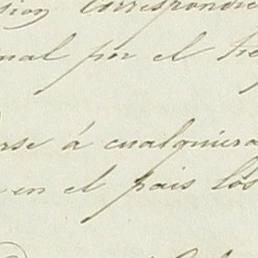 sion corresponde
nal por el tre
rse á cualquiera
en el pais los